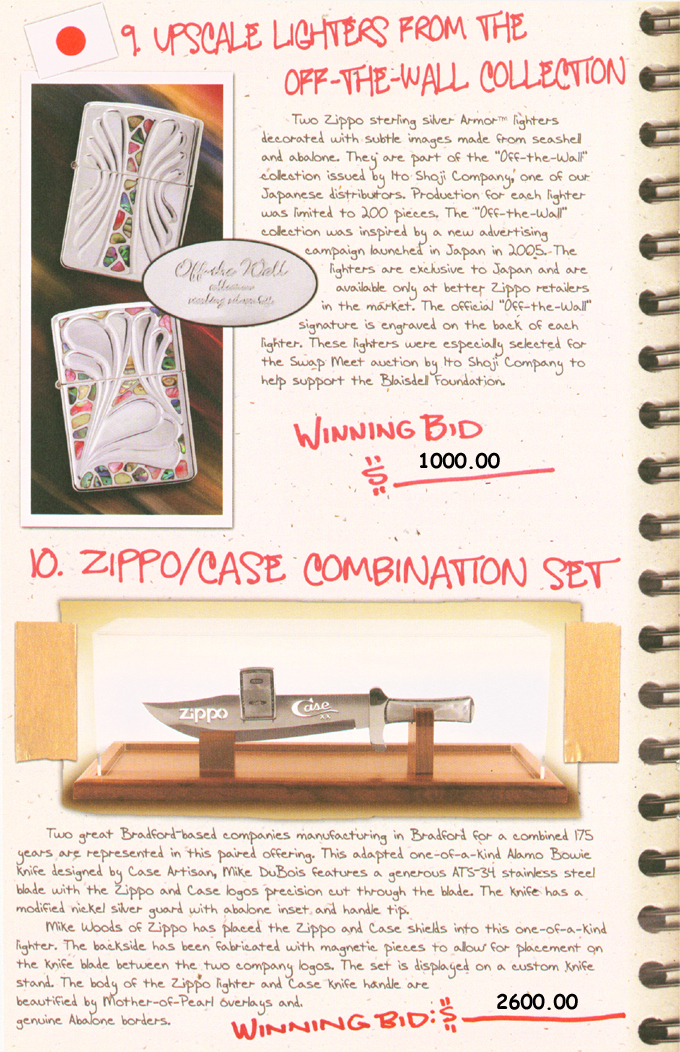 9. UPSCALE LIGHTERS FROM THE
OFF-THE-WALL COLLECTION
Two Zippo sterling silver Armor™ lighters
decorated with subtle images made from seashell
and abalone. They are part of the "Off-the-Wall"
collection issued by Ito Shoji Company, one of our
Japanese distributors. Production for each lighter
was limited to 200 pieces. The "Off-the-Wall"
collection was inspired by a new advertising
campaign launched in Japan in 2005. The
lighters are exclusive to Japan and are
available only at better Zippo retailers
in the market. The official "Off-the-Wall"
signature is engraved on the back of each
lighter. These lighters were especially selected for
the Swap Meet auction by Ito Shoji Company to
help support the Blaisdell Foundation.
Off-the Wall
collection
WINNING BID
$ 1000.00
10. ZIPPO/CASE COMBINATION SET
zippo
Case
XX
Two great Bradford-based companies manufacturing in Bradford for a combined 175
years are represented in this paired offering. This adapted one-of-a-kind Alamo Bowie
knife designed by Case Artisan, Mike DuBois features a generous ATS-34 stainless steel
blade with the Zippo and Case logos precision cut through the blade. The knife has a
modified nickel silver guard with abalone inset and handle tip.
Mike Woods of Zippo has placed the Zippo and Case shields into this one-of-a-kind
lighter. The backside has been fabricated with magnetic pieces to allow for placement on
the knife blade between the two company logos. The set is displayed on a custom knife
stand. The body of the Zippo lighter and Case knife handle are
beautified by Mother-of-Pearl overlays and
genuine Abalone borders.
WINNING BID: $ 2600.00